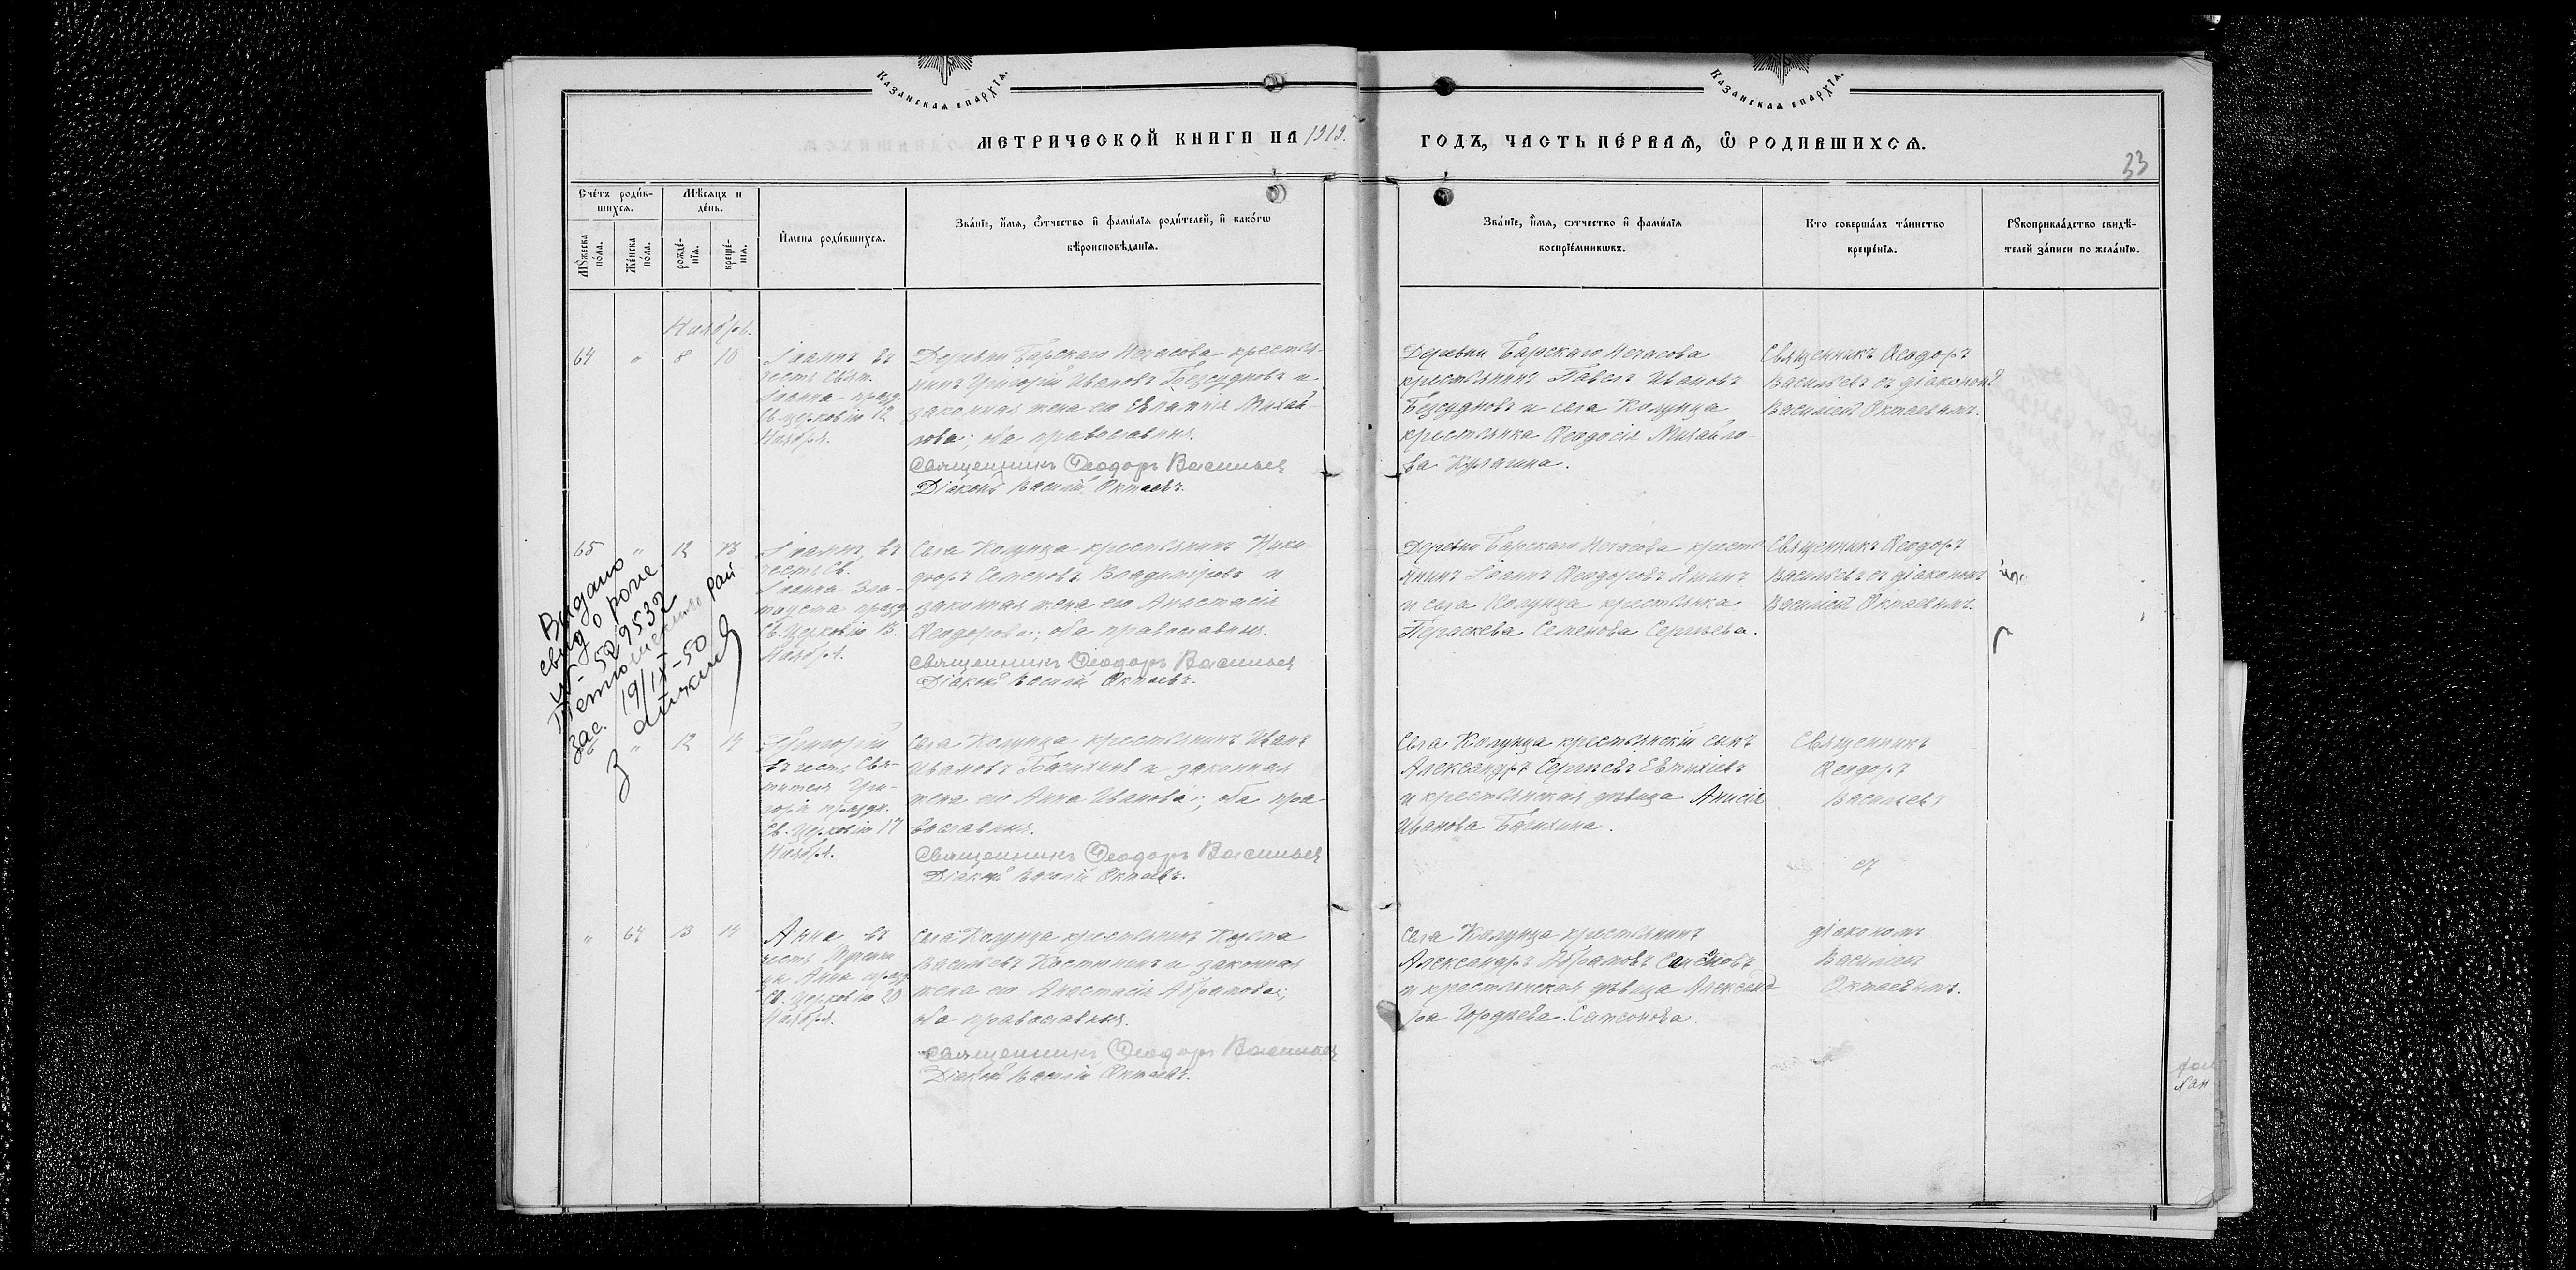 Казанская епархїѧ.
Казанская епархїѧ.
МЕТРИЧЕСКОЙ КНИГИ НА 1919.
ГОДЪ, ЧАСТЬ ПЕ́РВАѦ, Ѿ РОДИВШИХСѦ.
33
Счётъ роди́вшихсѧ.
Мꙋ́жеска по́ла.
Же́нска по́ла.
Мѣ́сѧцъ и де́нь.
рожде́нїѧ.
креще́нїѧ.
И҆мена роди́вшихсѧ.
Зва́нїе, и҆́мѧ, ѻ҆́тчество и҆ фами́лїѧ роди́телей, и҆ како́гѡ
вѣроисповѣ́данїѧ.
Зва́нїе, и҆́мѧ, ѻтчество и҆ фами́лїѧ
воспрїе́мникѡвъ.
Кто соверша́лъ та́инство
креще́нїѧ.
Рꙋкоприкла́дство свидѣ́-
телей за́писи по жела́нїю.
Ноябрь.
64 " 8 10
Іоаннъ въ
честь Свят.
Іоанна празд.
Св. церковію 12
Ноября.
Деревни Барскаго Исакова крестья-
нинъ Григорій Ивановъ Безсудновъ и
законная жена его Михай-
лова; оба православные.
Священникъ Ѳеодоръ Васильевъ
Діаконъ Василій Октаевъ.
Деревни Барскаго
крестьянинъ Павелъ Ивановъ
Безсудновъ и села Колунца
крестьянка Ѳеодосія Михайло-
ва Кулагина.
Священникъ Ѳеодоръ
Васильевъ съ діакономъ
Василіемъ Октаевымъ.
65 " 12 13
Іоаннъ, въ
честь Св.
Іоанна Зла-
тоуста празд.
Св. Церковію 13
Ноября.
Села Колунца крестьянинъ Ники-
форъ Семеновъ Владимровъ и
законная жена его Анастасія
Ѳеодорова; оба православные.
Священникъ Ѳеодоръ Васильевъ
Діаконъ Василій Октаевъ.
Деревни Барскаго крестья-
нинъ Іоаннъ Ѳеодоровъ Яшинъ
и села Колунца крестьянка
Параскева Семенова Сергеева.
Священникъ Ѳеодоръ
Васильевъ съ діакономъ
Василіемъ Октаевымъ.
Выдано
свид о рожд.
529532
Тетюшским рай
загс. 19/IX-50
" 12 14
Григорій
въ честь Свя-
тителя Гри-
горія праздн.
Св. Церковію 17
Ноября.
Села Колунца крестьянинъ Иванъ
Ивановъ Багихинъ и законная
жена его Анна Иванова; оба пра-
вославные.
Священникъ Ѳеодоръ Васильевъ
Діаконъ Василій Октаевъ.
Села Колунца крестьянскій сынъ
Александръ Сергѣевъ Евтихіевъ
и крестьянская дѣвица Анисія
Иванова Багихина.
Священникъ
Ѳеодоръ
Васильевъ
съ
" 64 13 14
Анна въ
честь Мучени
цы Анны празд
Св. Церковію 20
Ноября.
Села Колунца крестьянинъ Кузьма
Васильевъ Костинъ и законная
жена его Анастасія Абрамова;
оба православные.
Священникъ Ѳеодоръ Васильевъ
Діаконъ Василій Октаевъ.
Села Колунца крестьянинъ
Александръ Абрамовъ
и крестьянская дѣвица Александ
ра Самсонова.
діакономъ
Василіемъ
Октаевымъ.